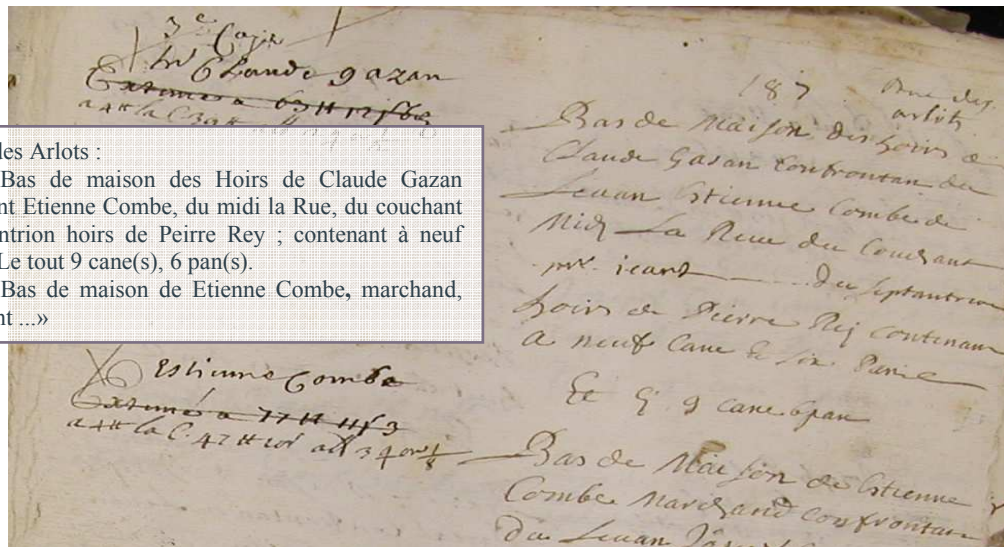 3e Cape
Claude gazan
Extimé a 63tt 12s 6d
a 4tt la C. 39tt
les Arlots :
Bas de maison des Hoirs de Claude Gazan
nt Etienne Combe, du midi la Rue, du couchant
ntrion hoirs de Peirre Rey ; contenant à neuf
Le tout 9 cane(s), 6 pan(s).
Bas de maison de Etienne Combe, marchand,
nt ...»
Estienne Combe
Extimé a 77tt 11s 3
a 4tt la C. 47tt
187
Rue des
arlots
Bas de Maison des hoirs de
Claude Gasan Confrontan du
Levan Estienne Combe de
Midy La Rue du Couchant
icard du septantrion
hoirs de Pierre Rey contenant
a neuf Cane & six Pans
Et 9 cane 6 pan
Bas de Maison de Estienne
Combe Marchand Confrontan
du Levan